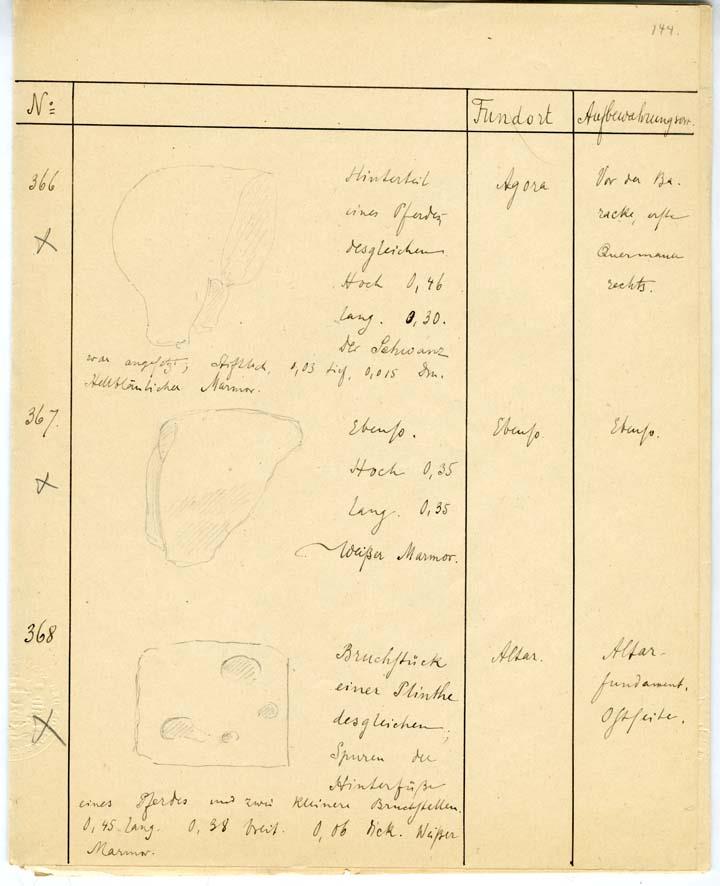 144.
No: Fundort Aufbewahrungsort.
366
Hinterteil
eines Pferdes,
desgleichen
Hoch 0,46
lang. 0,30.
Der Schwanz
war angesetzt; Stiftloch, 0,03 tief, 0,015 Dm.
Hellbläulicher Marmor.
Agora
Vor der Ba-
racke, erste
Quermauer
rechts.
367.
Ebenso.
Hoch 0,35
lang. 0,35
Weißer Marmor.
Ebenso.
Ebenso.
368
Bruchstück
einer Plinthe
desgleichen;
Spuren der
Hinterfüße
eines Pferdes und zwei kleinere Bruchstellen.
0,45 lang. 0,38 breit. 0,06 dick. Weißer
Marmor.
Altar.
Altar-
fundament.
Ostseite.